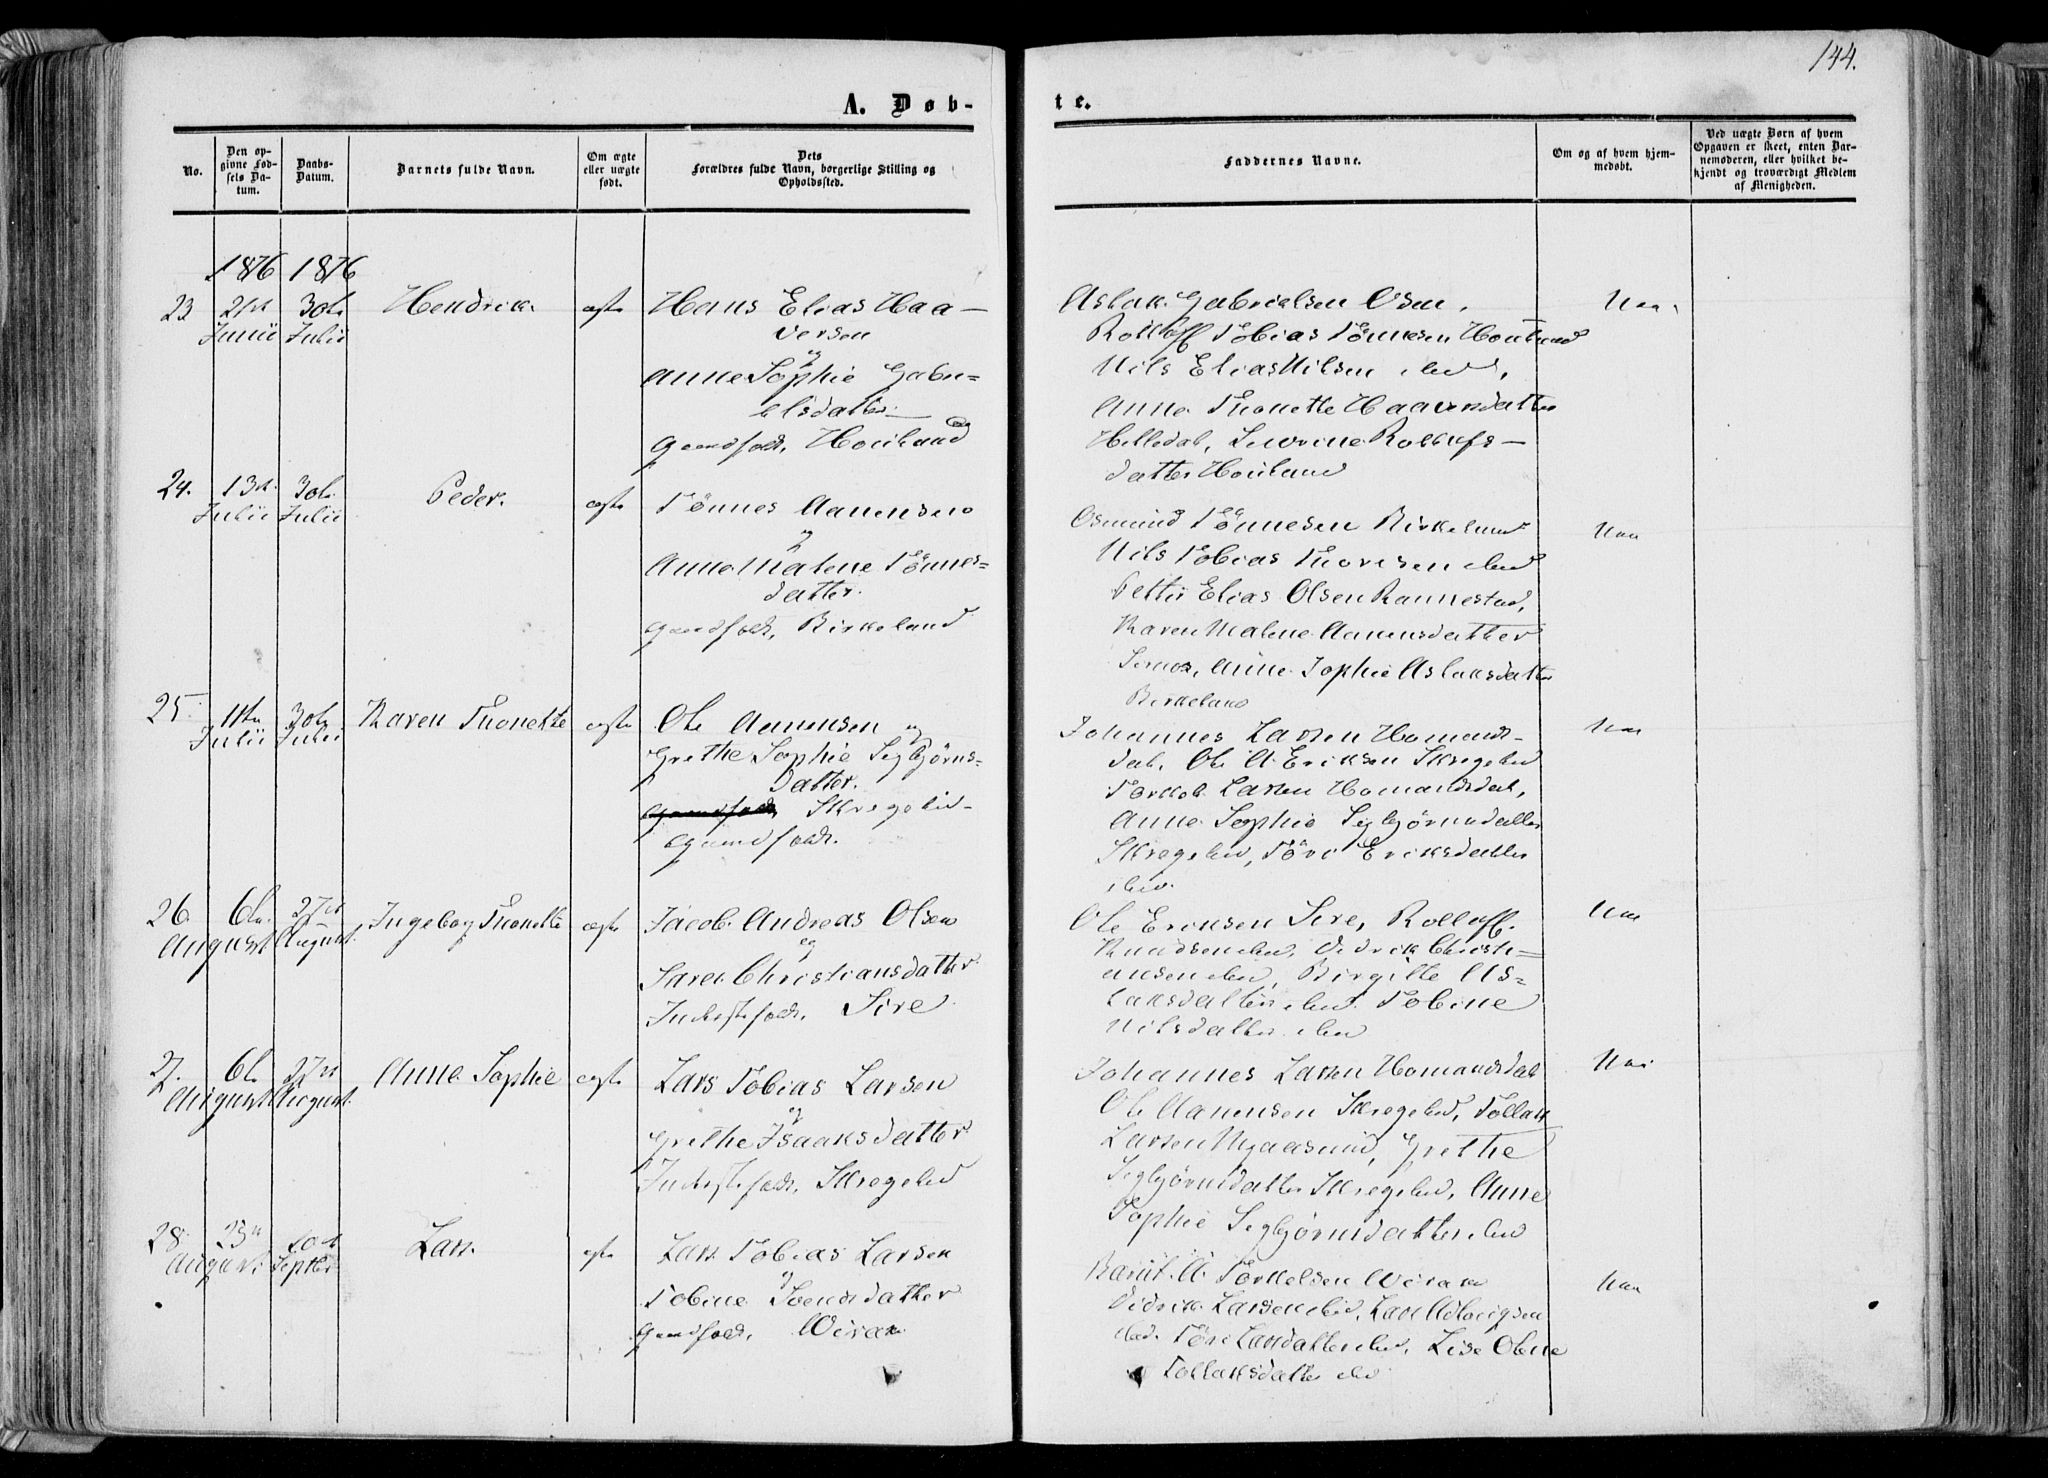 144.
A. Døb-
te.
No.
Den op-
givne Fød-
sels Da-
tum.
Daabs-
Datum.
Barnets fulde Navn.
Om ægte
eller uægte
født.
Dets
Forældres fulde Navn, borgerlige Stilling og
Opholdssted.
Faddernes Navne.
Om og af hvem hjem-
medøbt.
Ved uægte Børn af hvem
Opgaven er skeet, enten Bar-
nemoderen, eller hvilket be-
kjendt og troværdigt Medlem
af Menigheden.
1876 1876
23
Junii
30te
Julii
Hendrik
ægte
Hans Elias Haa-
versen
og
Anne Sophie Gabri-
elsdatter
Gaardfolk, Houland
Aslak Gabrielsen Osen,
Rolluff Tobias Tönnesen Houland
Nils Elias Nilsen ibid,
Anne Thonette Haaversdatter
Helledal, Severine Rollufs-
datter Houland
24.
13de
Julii
30te
Julii
Peder.
ægte
Tönnes Aanensen
og
Anne Malene Tönnes-
datter.
Gaardfolk, Birkeland
Osmund Tönnesen Birkeland
Nils Tobias Thorsen ibid
Petter Elias Olsen Rannestad,
Karen Malene Aanensdatter
Anne Sophie Aslaksdatter
Birkeland
25
11te
Julii
30te
Julii
Karen Thonette
ægte
Ole Aanensen og
Grethe Sophie Segbjørns-
datter.
Skregelid
Gaardfolk.
Johannes Larsen Homans-
dal, Ole A. Eriksen Skregelid
Torkel Larsen Homandsdal,
Anne Sophie Segbjørnsdatter
Skregelid, Töre Eriksdatter
ibid.
26
6te
August
27de
August.
Ingeborg Thonette
ægte
Jacob Andreas Olsen
og
Saren Christiansdatter
Inderstfolk, Sire
Ole Eriksen Sire, Rolluff
Knudsen ibid, Didrik Christi-
ansen ibid, Birgitte As-
laksdatter ibid. Tobine
Nilsdatter ibid
27.
6te
August
27de
August.
Anne Sophie
ægte
Lars Tobias Larsen
og
Grethe Isaaksdatter
Inderstfolk, Skregelid
Johannes Larsen Homandsdal
Ole Aanensen Skregelid, Tollak
Larsen Mgaasund, Grethe
Segbjørnsdatter Skregelid, Anne
Sophie Segbjørnsdatter ibid
28
23de
August
10de
Septbr
Lars
ægte
Lars Tobias Larsen
og
Tobine Svendsdatter
Gaardfolk, Virak
A. Torkelsen Virak
Didrik Larsen ibid, Lars
ibid. Töre Larsdatter ibid, Lise Olene
Tollaksdatter ibid